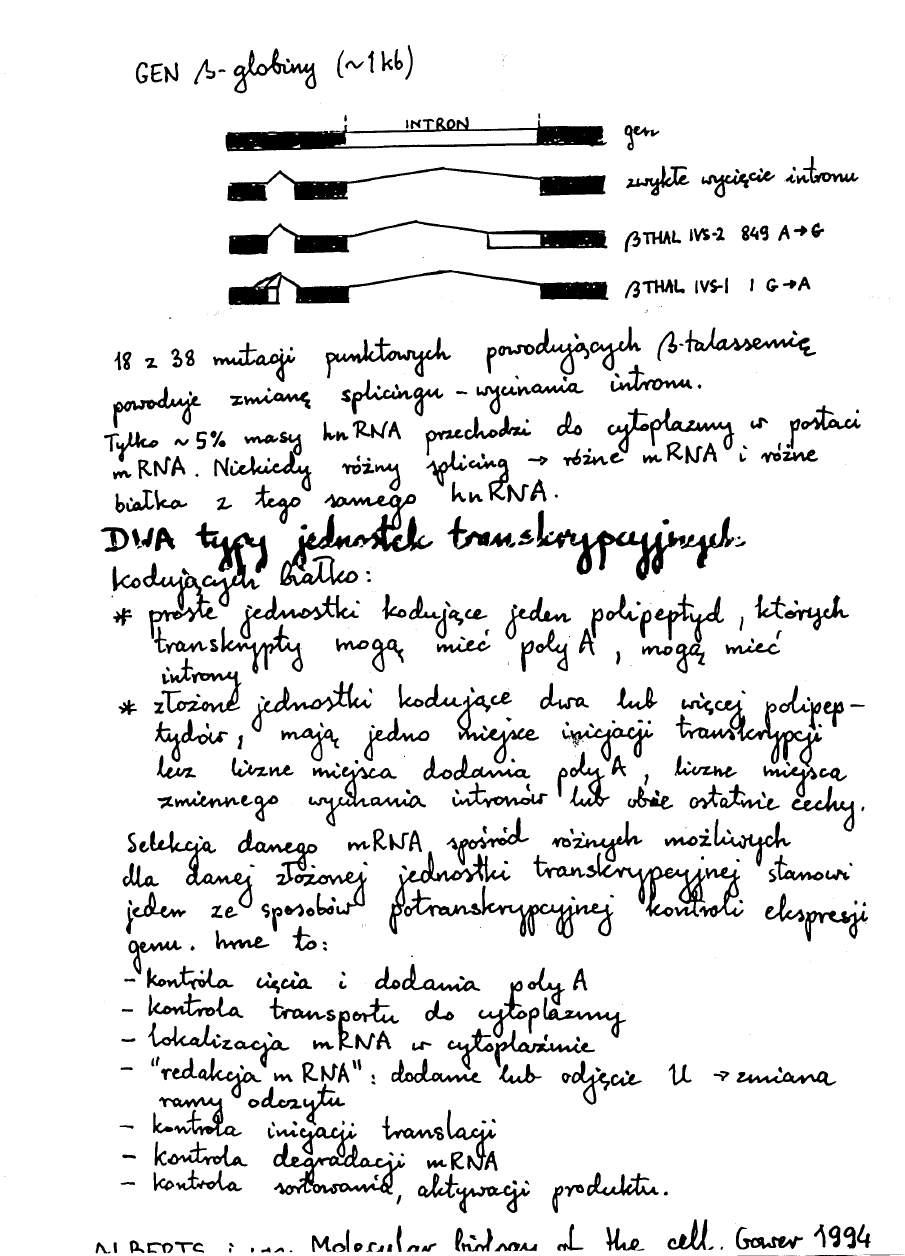 GEN β-globiny (~1kb)
INTRON
gen
zwykłe wycięcie intronu
βTHAL IVS-2 849 A→G
βTHAL IVS-1 1 G→A
18 z 38 mutacji punktowych powodujących β-talassemię
powoduje zmianę splicingu - wycinania intronu.
Tylko ~5% masy hnRNA przechodzi do cytoplazmy w postaci
mRNA. Niekiedy różny splicing → różne mRNA i różne
białka z tego samego hnRNA.
DWA typy jednostek transkrypcyjnych
kodujących białko:
* proste jednostki kodujące jeden polipeptyd, których
transkrypty mogą mieć poly A, mogą mieć
introny
* złożone jednostki kodujące dwa lub więcej polipep-
tydów, mają jedno miejsce inicjacji transkrypcji
lecz liczne miejsca dodania poly A, liczne miejsca
zmiennego wycinania intronów lub obie ostatnie cechy.
Selekcja danego mRNA spośród różnych możliwych
dla danej złożonej jednostki transkrypcyjnej stanowi
jeden ze sposobów potranskrypcyjnej kontroli ekspresji
genu. Inne to:
- kontrola cięcia i dodania poly A
- kontrola transportu do cytoplazmy
- lokalizacja mRNA w cytoplaźmie
- "redakcja mRNA": dodanie lub odjęcie U → zmiana
ramy odczytu
- kontrola inicjacji translacji
- kontrola degradacji mRNA
- kontrola sortowania, aktywacji produktu.
ALBERTS i inn. Molecular biology of the cell. Gower 1994